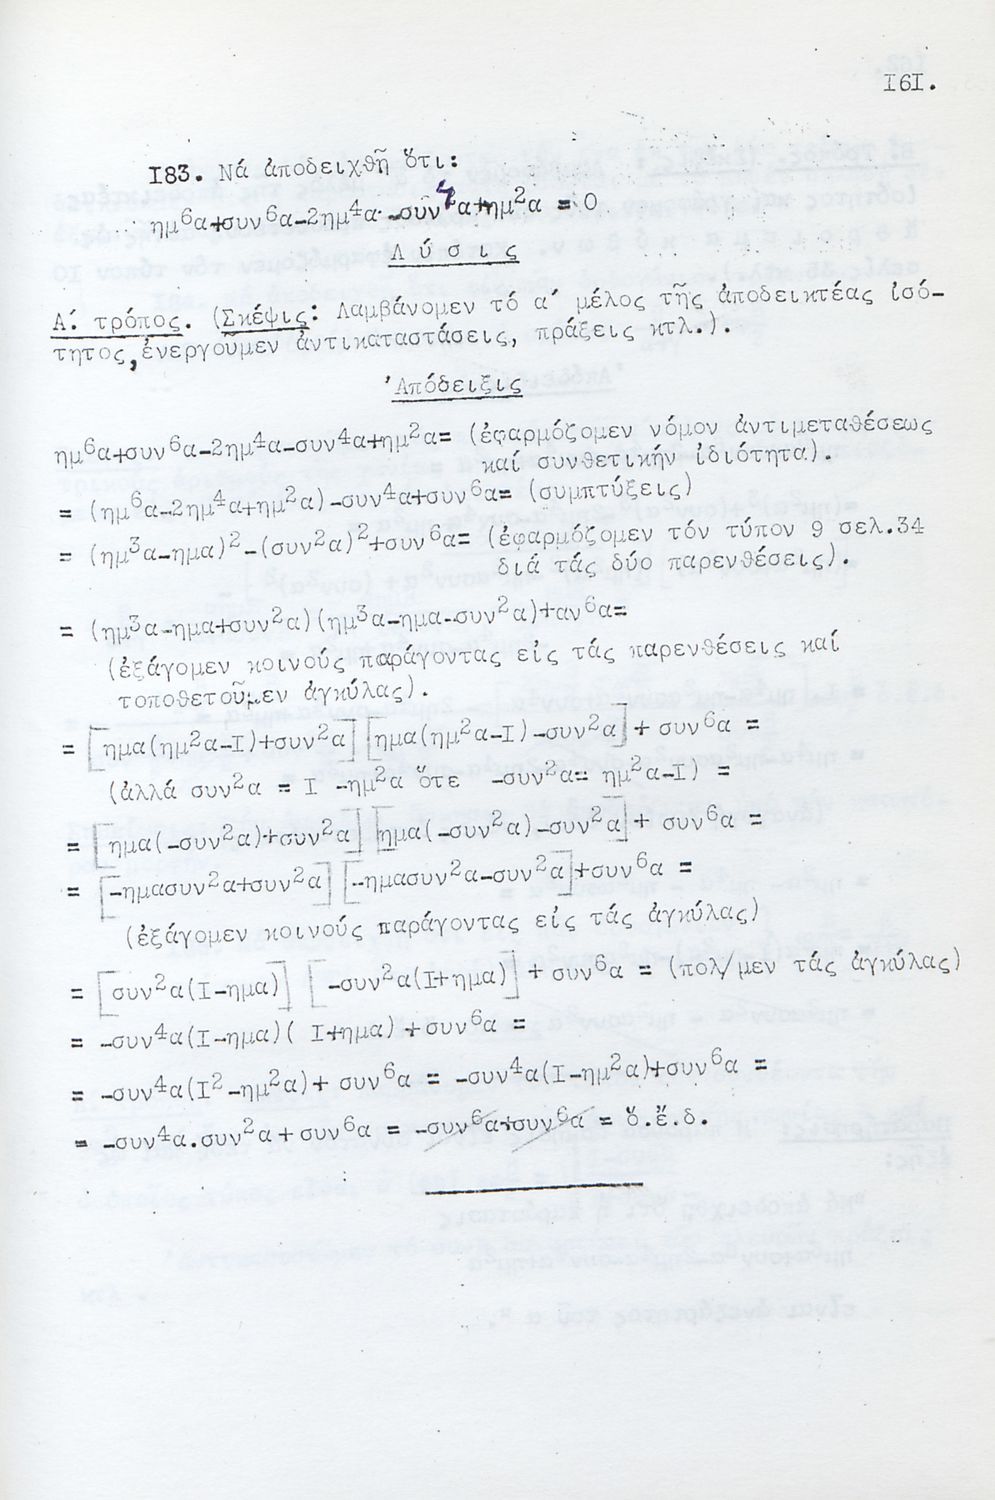 I6I.
I83. Νά ἀποδειχθῇ ὅτι:
ημ⁶α+συν⁶α-2ημ⁴α -συν⁴α+ημ²α = 0
Λ ύ σ ι ς
Α΄ τρόπος. (Σκέψις: Λαμβάνομεν τό α΄ μέλος τῆς ἀποδεικτέας ἰσό-
τητος, ἐνεργοῦμεν ἀντικαταστάσεις, πράξεις κτλ.).
Ἀπόδειξις
ημ⁶α+συν⁶α-2ημ⁴α-συν⁴α+ημ²α= (ἐφαρμόζομεν νόμον ἀντιμεταθέσεως
καί συνθετικήν ἰδιότητα).
= (ημ⁶α-2ημ⁴α+ημ²α)-συν⁴α+συν⁶α= (συμπτύξεις)
= (ημ³α-ημα)²-(συν²α)²+συν⁶α= (ἐφαρμόζομεν τόν τύπον 9 σελ.34
διά τάς δύο παρενθέσεις).
= (ημ³α-ημα+συν²α)(ημ³α-ημα-συν²α)+αν⁶α=
(ἐξάγομεν κοινούς παράγοντας εἰς τάς παρενθέσεις καί
τοποθετοῦμεν ἀγκύλας).
= [ημα(ημ²α-I)+συν²α] [ημα(ημ²α-I)-συν²α]+ συν⁶α =
(ἀλλά συν²α = I -ημ²α ὅτε -συν²α= ημ²α-I) =
= [ημα(-συν²α)+συν²α] [ημα(-συν²α)-συν²α]+ συν⁶α =
= [-ημασυν²α+συν²α] [-ημασυν²α-συν²α]+συν⁶α =
(ἐξάγομεν κοινούς παράγοντας εἰς τάς ἀγκύλας)
= [συν²α(I-ημα)] [-συν²α(I+ημα)] + συν⁶α = (πολ/μεν τάς ἀγκύλας)
= -συν⁴α(I-ημα)( I+ημα)+συν⁶α =
= -συν⁴α(I²-ημ²α)+ συν⁶α = -συν⁴α(I-ημ²α)+συν⁶α =
= -συν⁴α.συν²α+συν⁶α = -συν⁶α+συν⁶α = ὅ.ἔ.δ.